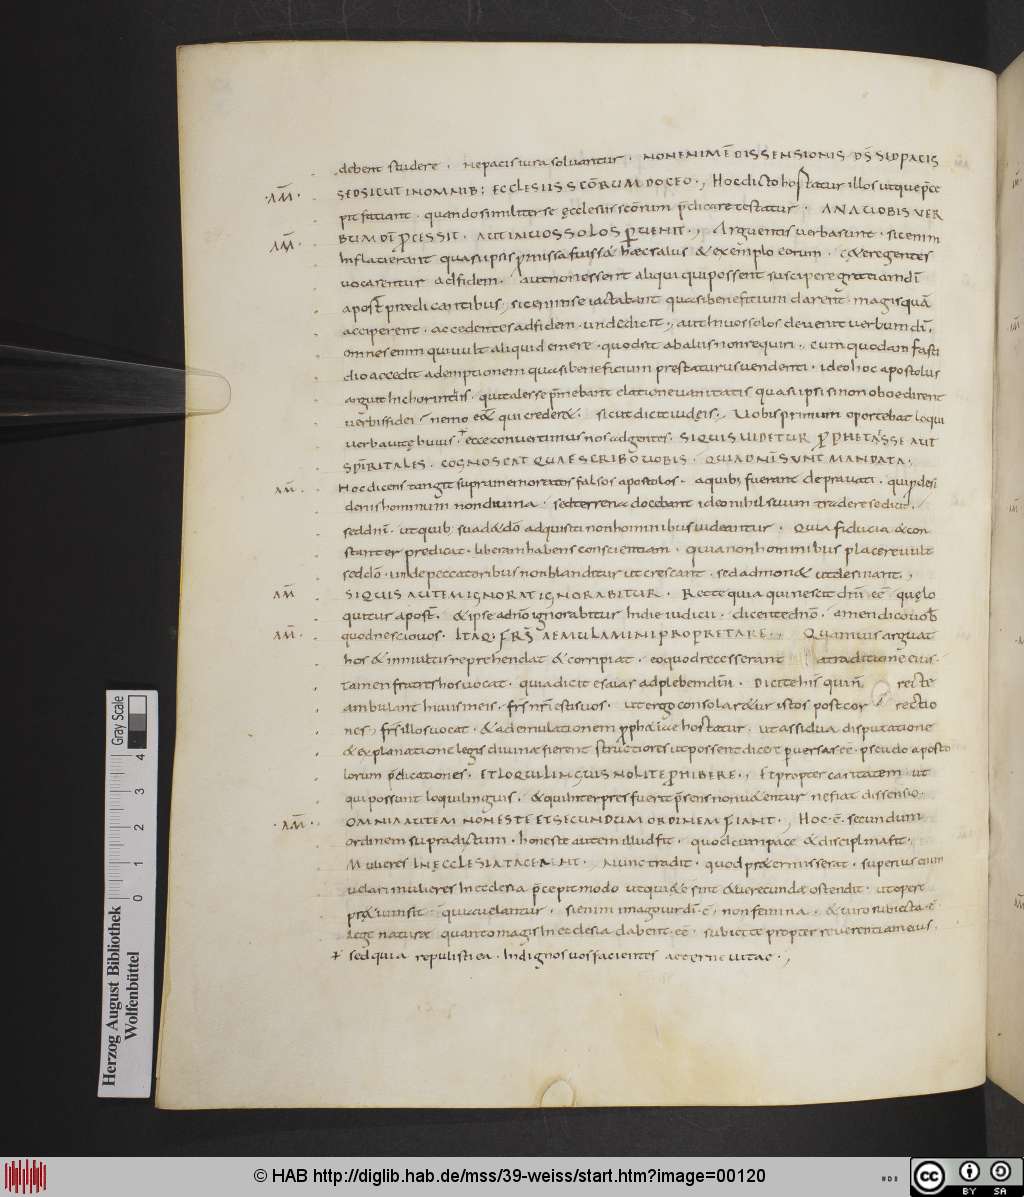 debent studere . ne pacis iura soluantur . NON ENIM Ē DISSENSIONIS DS̄ SED PACIS
AM̄ SED SICUT IN OMNIB; ECCLESIIS SCŌRUM DOCEO ., Hoc dicto hostatur illos utque p̄ce
pit faciant . quando similiter se ęcclesiis scōrum p̄dicare testatur . AN A UOBIS VER
AM̄ BUM DĪ PCESSIT . AUT IN UOS SOLOS PUENIT ., Arguentis uerba sunt . sic enim
Inflati erant quasi ipsis pmissa fuiss& haec salus & exemplo eorum . cęterę gentes
uocarentur ad fidem . aut non essent aliqui qui possent suscipere gratiam dī
apost̄ praedicantibus, sic enim se iactabant quasi beneficium darent . magis quā
acciperent . accedentes ad fidem . unde dicit, aut In uos solos deuenit uerbum dī,
omnes enim qui uult aliquid emere . quod sit ab aliis non requiri ., cum quodam fasti
dio accedit ad emptionem quasi beneficium prestaturus uendenti . ideo hoc apostolus
arguit In chorinthiis . qui tales se p̄mebant elatione uanitatis quasi ipsi si non oboedirent
uerbis fidei . nemo eēt qui crederet . sicut dicit iudęis ., Uobis primum oportebat loqui
uerba uitę huius . ecce conuertimus nos ad gentes . SI QUIS UIDETUR PPHETA ESSE AUT
SPIRITALIS . COGNOSCAT QUAE SCRIBO UOBIS . QUIA DNĪ SUNT MANDATA .,
AM̄ Hoc dicens tangit supra memoratos falsos apostolos . a quib; fuerant deprauati . qui p desi
deriis hominum non diuina . sed terrena docebant ideo nihil suum tradere se dicit .
sed dnī . ut quib; suad& dō adquisiti non hominibus uideantur . Quia fiducia & con
stanter predicat . liberam habens conscientiam . quia non hominibus placere uult
sed dō . unde peccatoribus non blanditur ut crescant . sed admon& ut desinant .,
AM̄ SI QUIS AUTEM IGNORAT IGNORABITUR . Recte quia qui nescit dnī eē quę lo
quitur apost̄ . & ipse a dnō ignorabitur In die iudicii . dicente dnō . amen dico uob̄
AM̄ quod nescio uos . ITAQ; FRS̄ AEMULAMINI PROPHETARE ., Quamuis arguat
hos & in multis reprehendat & corripiat . eo quod recesserant a traditione eius .
tamen fratres hos uocat . quia dicit esaias ad plebem dnī . Dicite his qui n̄ recte
ambulant In uiis meis . frs̄ nrī estis uos . ut ergo consolar&ur istos post cor rectio
nes, frs̄ illos uocat . & ad emulationem pph&iae hostatur . ut assidua disputatione
& explanatione legis diuinae fierent structiores ut possent dicere puersas eē . pseudo aposto
lorum p̄dicationes . ET LOQUI LINGUIS NOLITE PHIBERE ., Et propter caritatem . ut
qui possunt loqui linguis . & qui interpres fuerit p̄sens non u&entur ne fiat dissensio .
AM̄ OMNIA AUTEM HONESTE ET SECUNDUM ORDINEM FIANT ., Hoc ē . secundum
ordinem supra dictum . honeste autem illud fit . quod cum pace & disciplina fit .
Mulieres IN ĘCCLESIA TACEANT ., Nunc tradit . quod pr&ermisserat . superius enim
uelari mulieres In ecclesia p̄cepit modo ut qui&ę sint & uerecundae ostendit . ut operę
pr&ium sit . quia uelantur . si enim imago uir dī ē, non femina . & uiro subiecta ē
lege naturae quanto magis In ecclesia debent eē . subiectę propter reuerentiam eius .
sed quia repulisti ea . Indignos uos facientes aeternę uitae .,
Gray Scale
0 1 2 3 4
Herzog August Bibliothek
Wolfenbüttel
© HAB http://diglib.hab.de/mss/39-weiss/start.htm?image=00120
cc BY SA